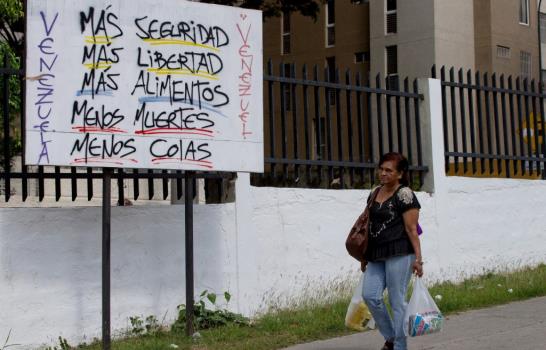 VENEZUELA
MÁS SEGURIDAD
MÁS LIBERTAD
MÁS ALIMENTOS
MENOS MUERTES
MENOS COLAS
VENEZUEL